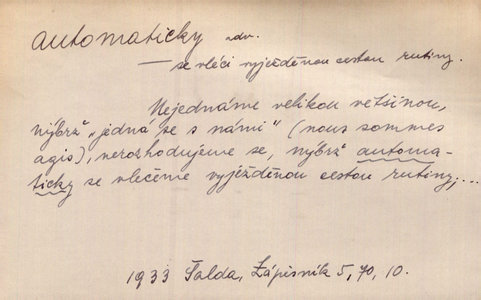 automaticky adv.
— se vléci vyježděnou cestou rutiny.
Nejednáme velikou většinou,
nýbrž „jedná se s námi“ (nous sommes
agis), nerozhodujeme se, nýbrž automa-
ticky se vlečeme vyježděnou cestou rutiny;...
1933 Šalda, Zápisník 5, 70, 10.